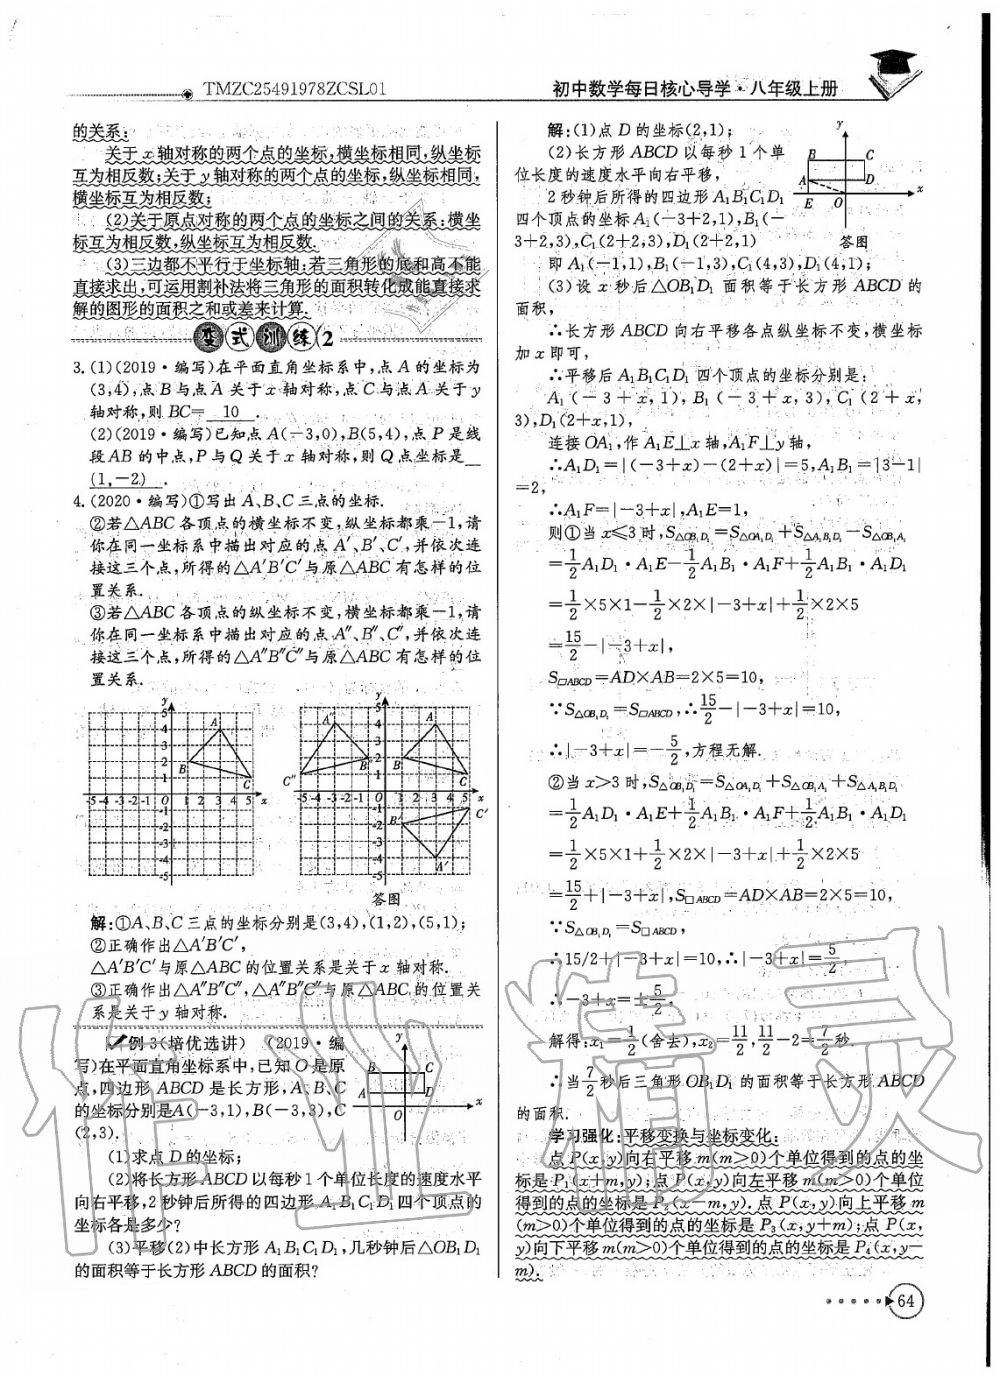 TMZC25491978ZCSL01
初中数学每日核心导学·八年级上册
的关系:
关于x轴对称的两个点的坐标,横坐标相同,纵坐标
互为相反数;关于y轴对称的两个点的坐标,纵坐标相同,
横坐标互为相反数;
(2)关于原点对称的两个点的坐标之间的关系:横坐
标互为相反数,纵坐标互为相反数.
(3)三边都不平行于坐标轴:若三角形的底和高不能
直接求出,可运用割补法将三角形的面积转化成能直接求
解的图形的面积之和或差来计算.
变式训练2
3.(1)(2019·编写)在平面直角坐标系中,点A的坐标为
(3,4),点B与点A关于x轴对称,点C与点A关于y
轴对称,则BC=  10  .
(2)(2019·编写)已知点A(-3,0),B(5,4),点P是线
段AB的中点,P与Q关于x轴对称,则Q点坐标是
(1,-2) .
4.(2020·编写)①写出A、B、C三点的坐标.
②若△ABC各顶点的横坐标不变,纵坐标都乘-1,请
你在同一坐标系中描出对应的点A′、B′、C′,并依次连
接这三个点,所得的△A′B′C′与原△ABC有怎样的位
置关系.
③若△ABC各顶点的纵坐标不变,横坐标都乘-1,请
你在同一坐标系中描出对应的点A″、B″、C″,并依次连
接这三个点,所得的△A″B″C″与原△ABC有怎样的位
置关系.
答图
解:①A、B、C三点的坐标分别是(3,4),(1,2),(5,1);
②正确作出△A′B′C′,
△A′B′C′与原△ABC的位置关系是关于x轴对称.
③正确作出△A″B″C″,△A″B″C″与原△ABC的位置关
系是关于y轴对称.
例3(培优选讲) (2019·编
写)在平面直角坐标系中,已知O是原
点,四边形ABCD是长方形,A、B、C
的坐标分别是A(-3,1),B(-3,3),C
(2,3).
(1)求点D的坐标;
(2)将长方形ABCD以每秒1个单位长度的速度水平
向右平移,2秒钟后所得的四边形A₁B₁C₁D₁四个顶点的
坐标各是多少?
(3)平移(2)中长方形A₁B₁C₁D₁,几秒钟后△OB₁D₁
的面积等于长方形ABCD的面积?
解:(1)点D的坐标(2,1);
(2)长方形ABCD以每秒1个单
位长度的速度水平向右平移,
2秒钟后所得的四边形A₁B₁C₁D₁
四个顶点的坐标A₁(-3+2,1),B₁(-
3+2,3),C₁(2+2,3),D₁(2+2,1)
答图
即A₁(-1,1),B₁(-1,3),C₁(4,3),D₁(4,1);
(3)设x秒后△OB₁D₁面积等于长方形ABCD的
面积,
∴长方形ABCD向右平移各点纵坐标不变,横坐标
加x即可,
∴平移后A₁B₁C₁D₁四个顶点的坐标分别是:
A₁(-3+x,1),B₁(-3+x,3),C₁(2+x,
3),D₁(2+x,1),
连接OA₁,作A₁E⊥x轴,A₁F⊥y轴,
∴A₁D₁=|(-3+x)-(2+x)|=5,A₁B₁=|3-1|
=2,
∴A₁F=|-3+x|,A₁E=1,
则①当x≤3时,S△OB₁D₁=S△OA₁D₁+S△A₁B₁D₁-S△OB₁A₁
=1/2A₁D₁·A₁E-1/2A₁B₁·A₁F+1/2A₁B₁·A₁D₁
=1/2×5×1-1/2×2×|-3+x|+1/2×2×5
=15/2-|-3+x|,
S□ABCD=AD×AB=2×5=10,
∵S△OB₁D₁=S□ABCD,∴15/2-|-3+x|=10,
∴|-3+x|=-5/2,方程无解.
②当x>3时,S△OB₁D₁=S△OA₁D₁+S△OB₁A₁+S△A₁B₁D₁
=1/2A₁D₁·A₁E+1/2A₁B₁·A₁F+1/2A₁B₁·A₁D₁
=1/2×5×1+1/2×2×|-3+x|+1/2×2×5
=15/2+|-3+x|,S□ABCD=AD×AB=2×5=10,
∵S△OB₁D₁=S□ABCD,
∴15/2+|-3+x|=10,∴|-3+x|=5/2,
∴-3+x=±5/2,
解得:x₁=1/2(舍去),x₂=11/2,11/2-2=7/2秒.
∴当7/2秒后三角形OB₁D₁的面积等于长方形ABCD
的面积.
学习强化:平移变换与坐标变化:
点P(x,y)向右平移m(m>0)个单位得到的点的坐
标是P₁(x+m,y);点P(x,y)向左平移m(m>0)个单位
得到的点的坐标是P₂(x-m,y).点P(x,y)向上平移m
(m>0)个单位得到的点的坐标是P₃(x,y+m);点P(x,
y)向下平移m(m>0)个单位得到的点的坐标是P₄(x,y-
m).
64
作业精灵